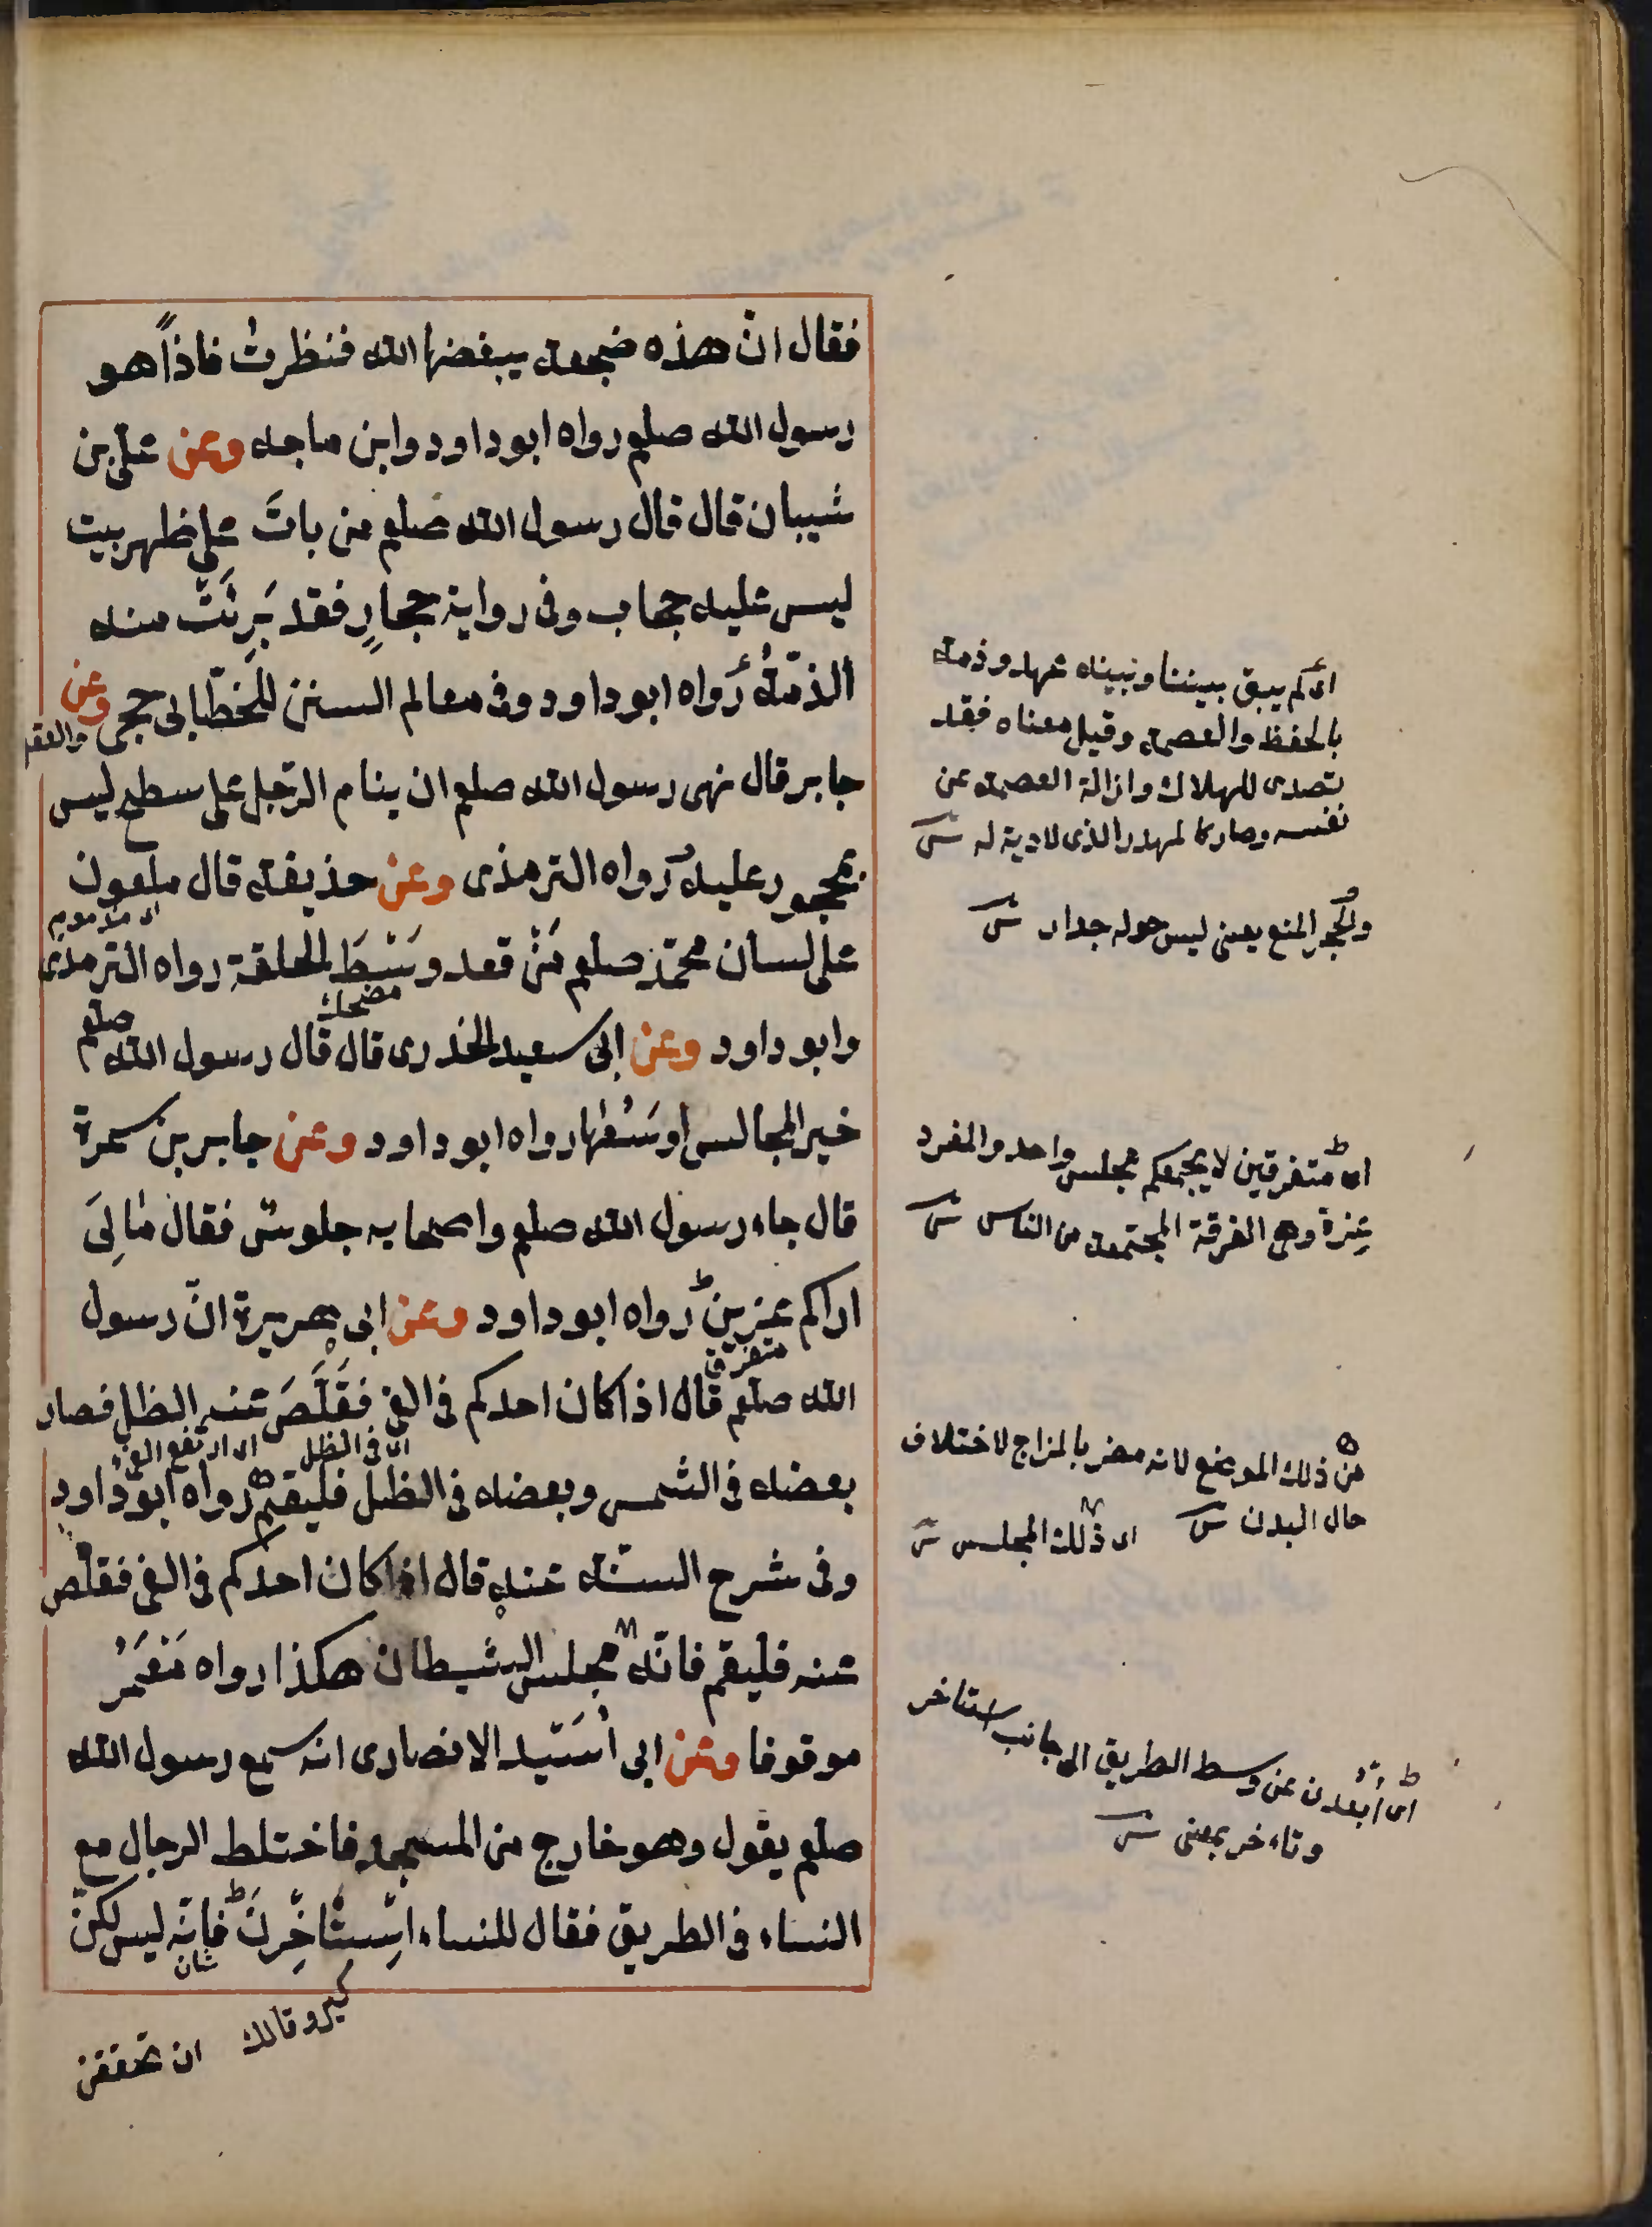 فقال انّ هذه ضجعة يبغضها الله فنظرتُ فاذاً هو
رسول الله صلعم رواه ابو داود وابن ماجه وعن علىّ بن
شيبان قال قال رسول الله صلعم من باتَ على ظهر بيت
ليس عليه حجاب وفى رواية حجارٍ فقد بَرِئَتْ منه
الذمّةُ رواه ابو داود وفى معالم السنن للخطّابى حجى وعن
والعقد
جابر قال نهى رسول الله صلعم ان ينام الرّجل على سطح ليس
بمحجور عليه رواه الترمذى وعن حذيفة قال ملعون
على لسان محمّد صلعم مَنْ قعد وَسْطَ الحلقة رواه الترمذى
مضحك
وابو داود وعن ابى سعيد الخدرى قال قال رسول الله صلعم
خير المجالس اوسَعُها رواه ابو داود وعن جابر بن سمرة
قال جاء رسول الله صلعم واصحابه جلوسٌ فقال مَا لِىَ
اراكم عِزِينَ رواه ابو داود وعن ابى هريرة انّ رسول
متفرق
الله صلعم قال اذا كان احدكم فى الفئ فقَلَّصَ عنه الظل فصار
اى فى الظل اى ارتفع الفئ
بعضه فى الشمس وبعضه فى الظل فليقم رواه ابو داود
وفى شرح السنّة عنه قال اذا كان احدكم فى الفئ فقلّص
عنه فليقم فانّه مجلس الشيطان هكذا رواه مَعْمَرُ
موقوفا وعن ابى اُسَيْد الانصارى انه سمع رسول الله
صلعم يقول وهو خارج من المسجد فاختلط الرجال مع
النساء فى الطريق فقال للنساء اِسْتَأْخِرْنَ فإنّه ليس لكنّ
شان
ان تحققن
اى لم يبق بيننا وبينه عهد وذمة
بالحفظ والعصمة وقيل معناه فقد
تصدى للهلاك وازالة العصمة عن
نفسه وصار كالمهدر الذى لا دية له ش
والحجر المنع يعنى ليس حوله جدار ش
اى متفرقين لا يجمعكم مجلس واحد والمفرد
عِزة وهى الفرقة المجتمعة من الناس ش
من ذلك الموضع لانه مضر بالمزاج لاختلاف
حال البدن ش اى ذلك المجلس ش
اى اُبْعُدن عن وسط الطريق الى جانب استاخر
وتاءخر بمعنى ش